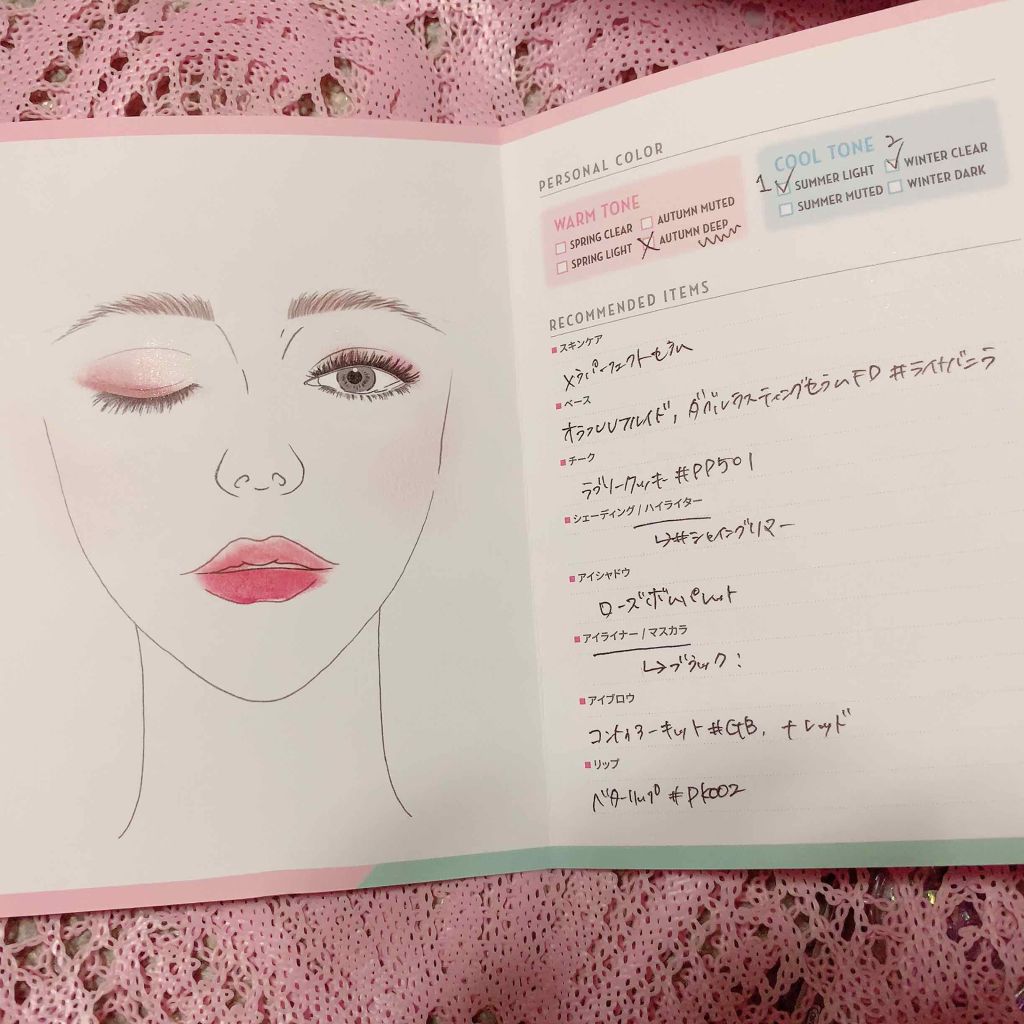 PERSONAL COLOR
WARM TONE
SPRING CLEAR
AUTUMN MUTED
SPRING LIGHT
AUTUMN DEEP
COOL TONE 2
1 SUMMER LIGHT
WINTER CLEAR
SUMMER MUTED
WINTER DARK
RECOMMENDED ITEMS
スキンケア
ベース
ダブルラスティングセラムFD #ライトバニラ
チーク
ラブリークッキー #PP501
シェーディング / ハイライター
アイシャドウ
ローズボムパレット
アイライナー / マスカラ
↳ブラック:
アイブロウ
コントゥアーキット #GB, +レッド
リップ
ベターリップ #PK002